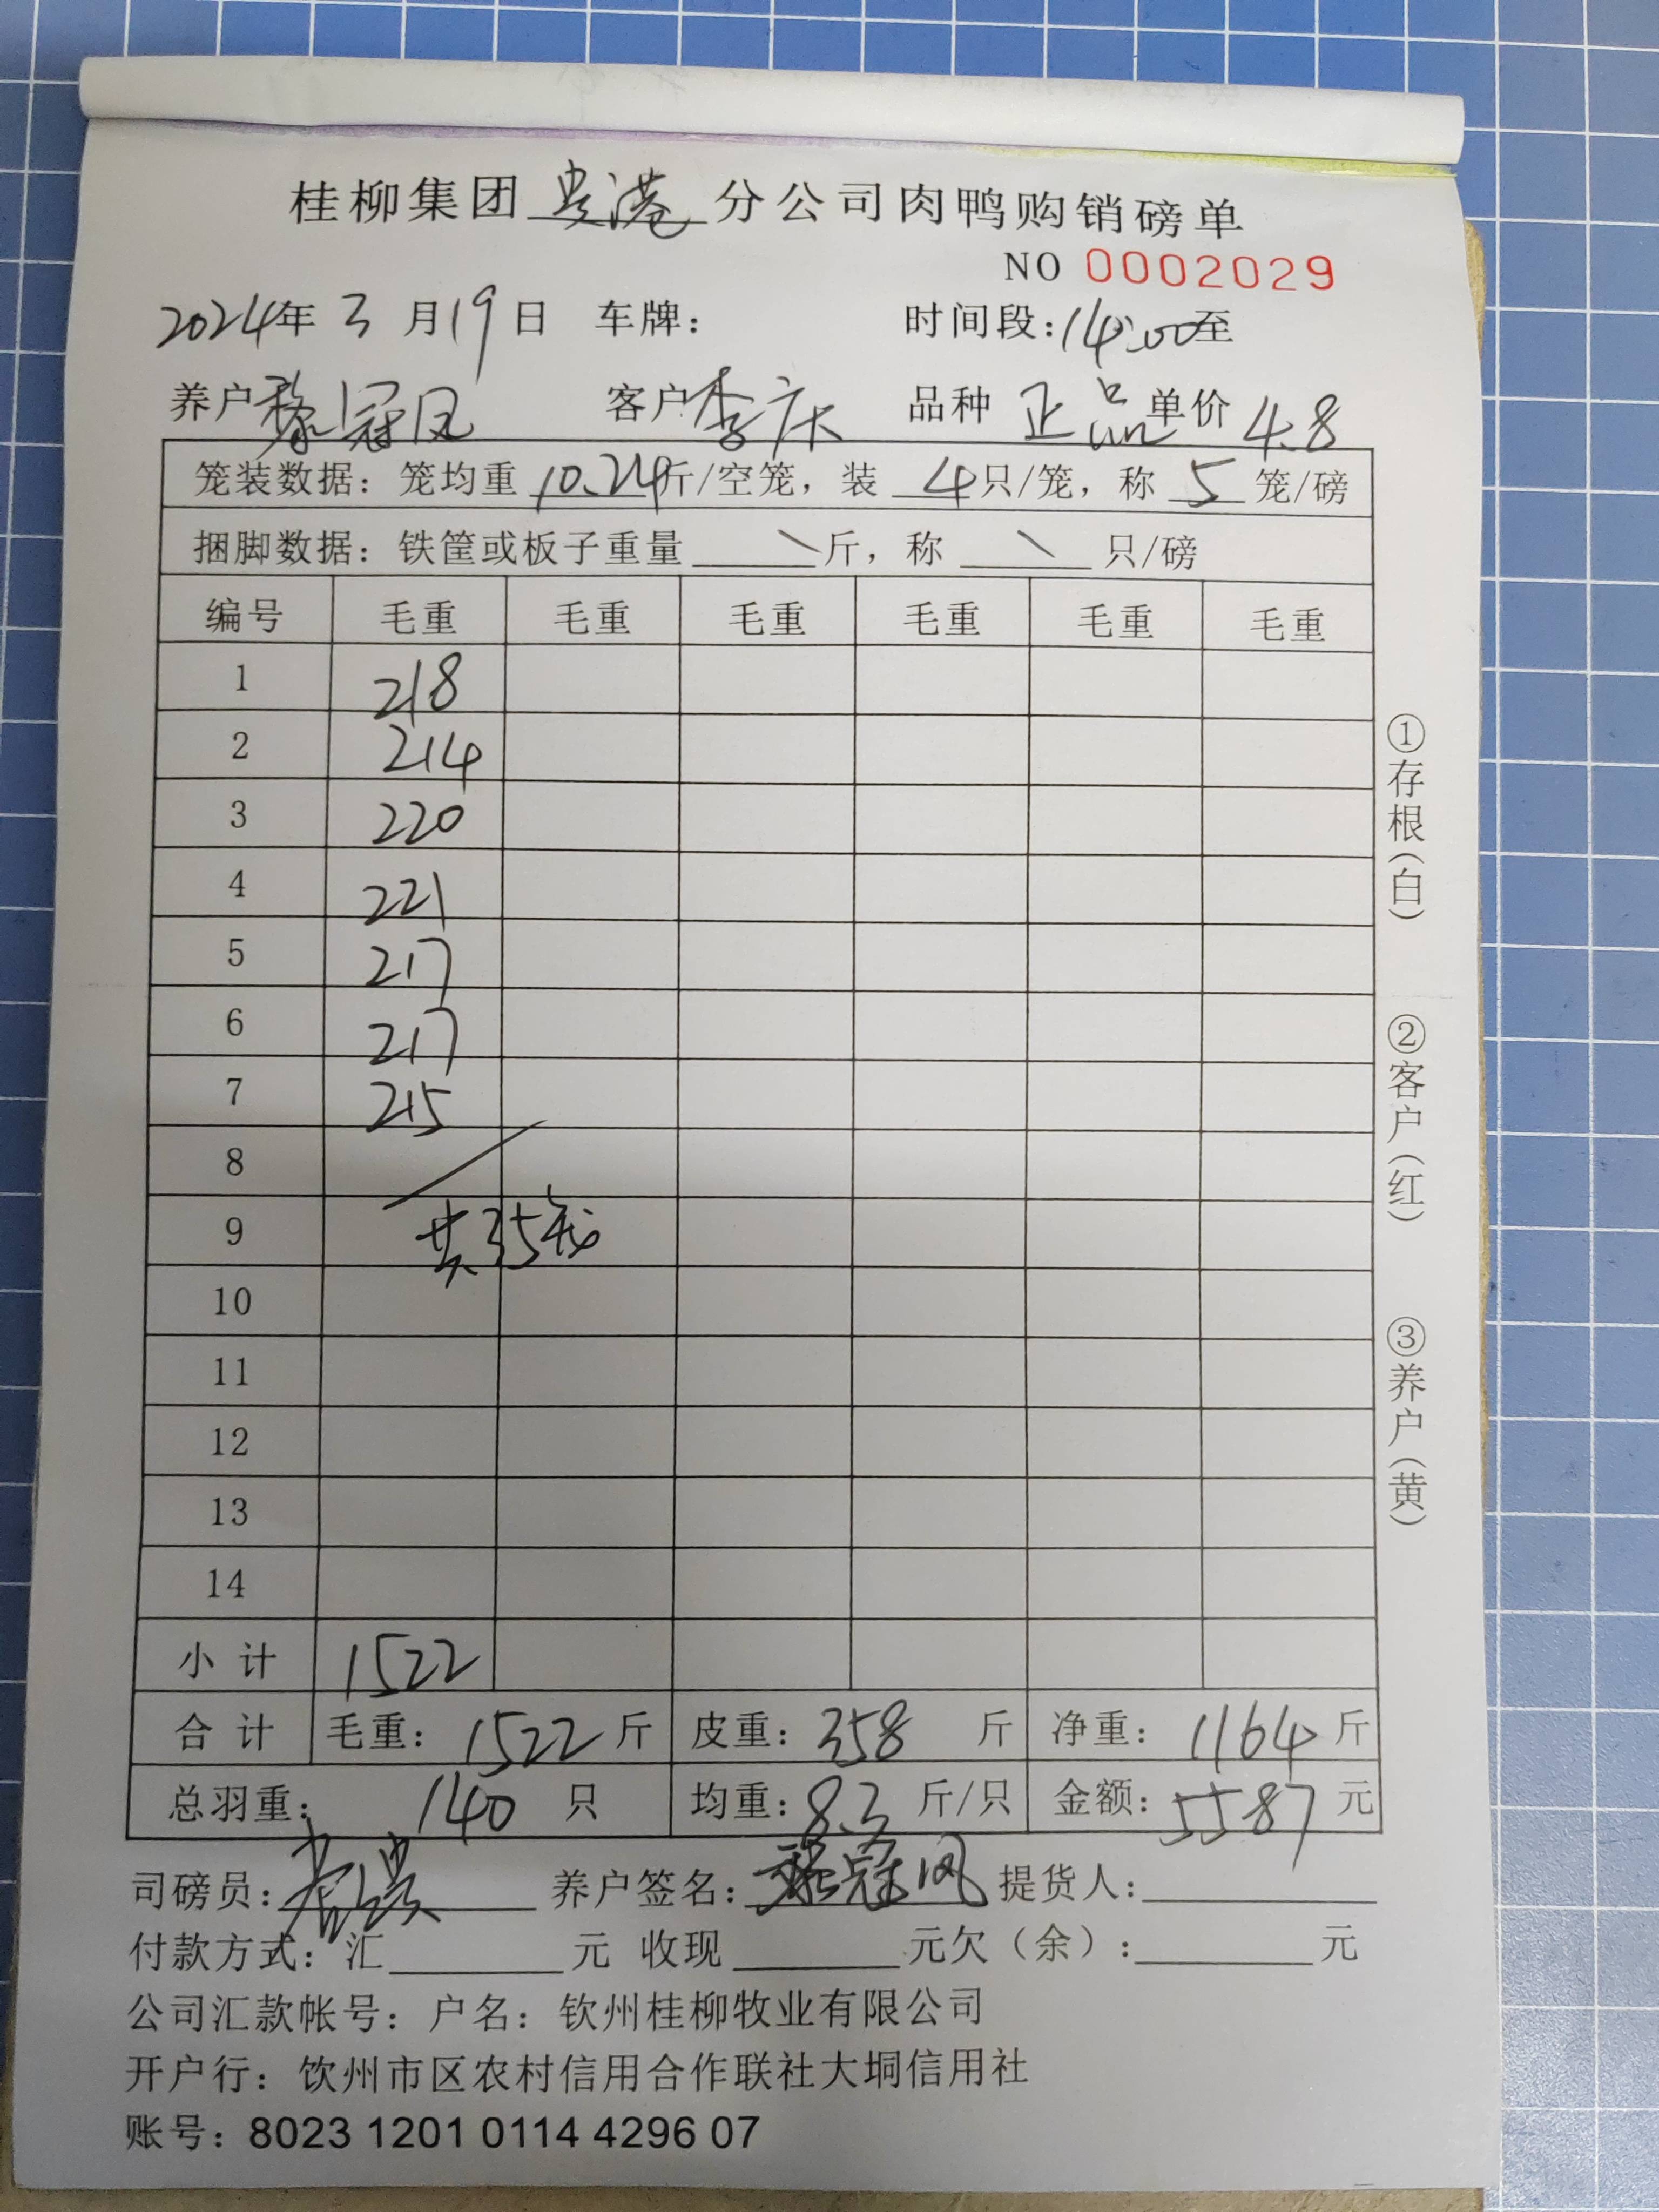 桂柳集团 贵港 分公司肉鸭购销磅单
NO 0002029
2024年 3 月19日 车牌： 时间段：14:00至
养户 黎冠凤 客户 李庆 品种 正品 单价 4.8
笼装数据：笼均重 10.24斤/空笼，装 4只/笼，称 5 笼/磅
捆脚数据：铁筐或板子重量 \斤，称 \ 只/磅
编号 毛重 毛重 毛重 毛重 毛重 毛重
1 218
2 214
3 220
4 221
5 217
6 217
7 215
8
9 共35笼
10
11
12
13
14
小计 1522
合计 毛重：1522斤 皮重：358 斤 净重：1164斤
总羽重：140 只 均重：8.3 斤/只 金额：5587 元
司磅员： 养户签名：黎冠凤 提货人：
付款方式：汇 元 收现 元欠（余）： 元
公司汇款帐号：户名：钦州桂柳牧业有限公司
开户行：饮州市区农村信用合作联社大垌信用社
账号：8023 1201 0114 4296 07
①存根（白）
②客户（红）
③养户（黄）